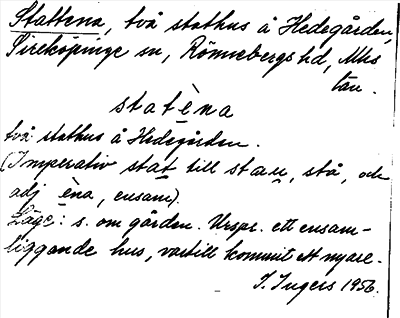 Stattena, två stathus å Hedegården,
Sireköpinge sn, Rönnebergs hd, Mhs
län.
statèna
två stathus å Hedegården.
(Imperativ stat till stæu, stå, och
adj èna, ensam).
Läge: s. om gården. Urspr. ett ensam-
liggande hus, vartill kommit ett nyare.
I. Ingers 1956.